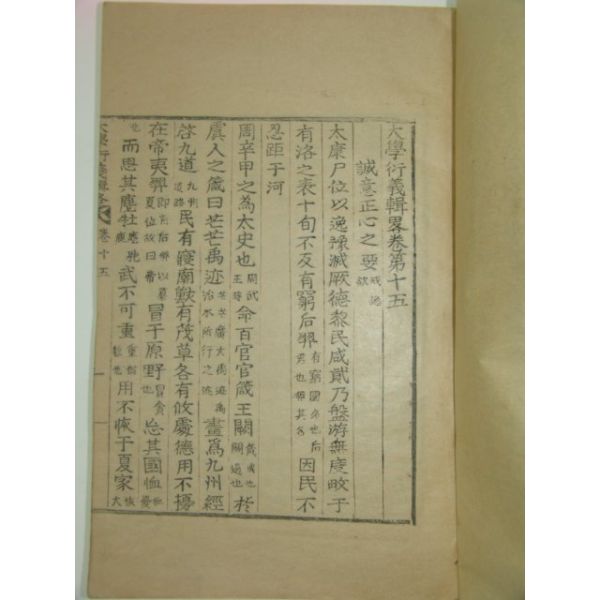 大學衍義輯畧卷第十五
誠意正心之要 戒逸欲
太康尸位以逸豫滅厥德黎民咸貳乃盤游無度畋于
有洛之表十旬不反有窮后羿 有窮國名也后君也羿其名 因民不
忍距于河
周辛甲之為太史也 周武王時 命百官官箴王闕 箴戒也闕過也 於
虞人之箴曰芒芒禹迹 芒芒廣大 畫為九州經
啓九道 九州道路 民有寢廟獸有茂草各有攸處德用不擾
在帝夷羿 冒于原野 冒貪也 忘其國恤
而思其麀牡 武不可重 用不恢于夏家
大學衍義輯畧 卷十五